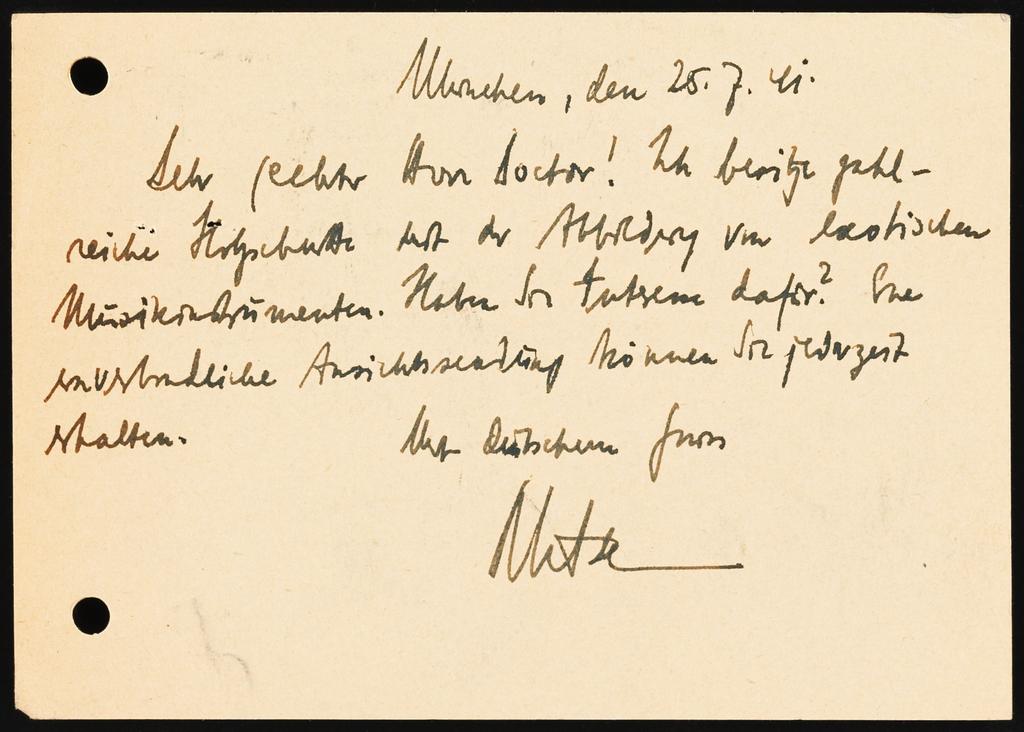 München, den 28. 7. 41.
Sehr geehrter Herr Doctor! Ich besitze zahl-
reiche Holzschnitte mit der Abbildung von exotischen
Musikinstrumenten. Haben Sie Interesse dafür? Eine
unverbindliche Ansichtssendung können Sie jederzeit
erhalten. Mit Deutschem Gruss